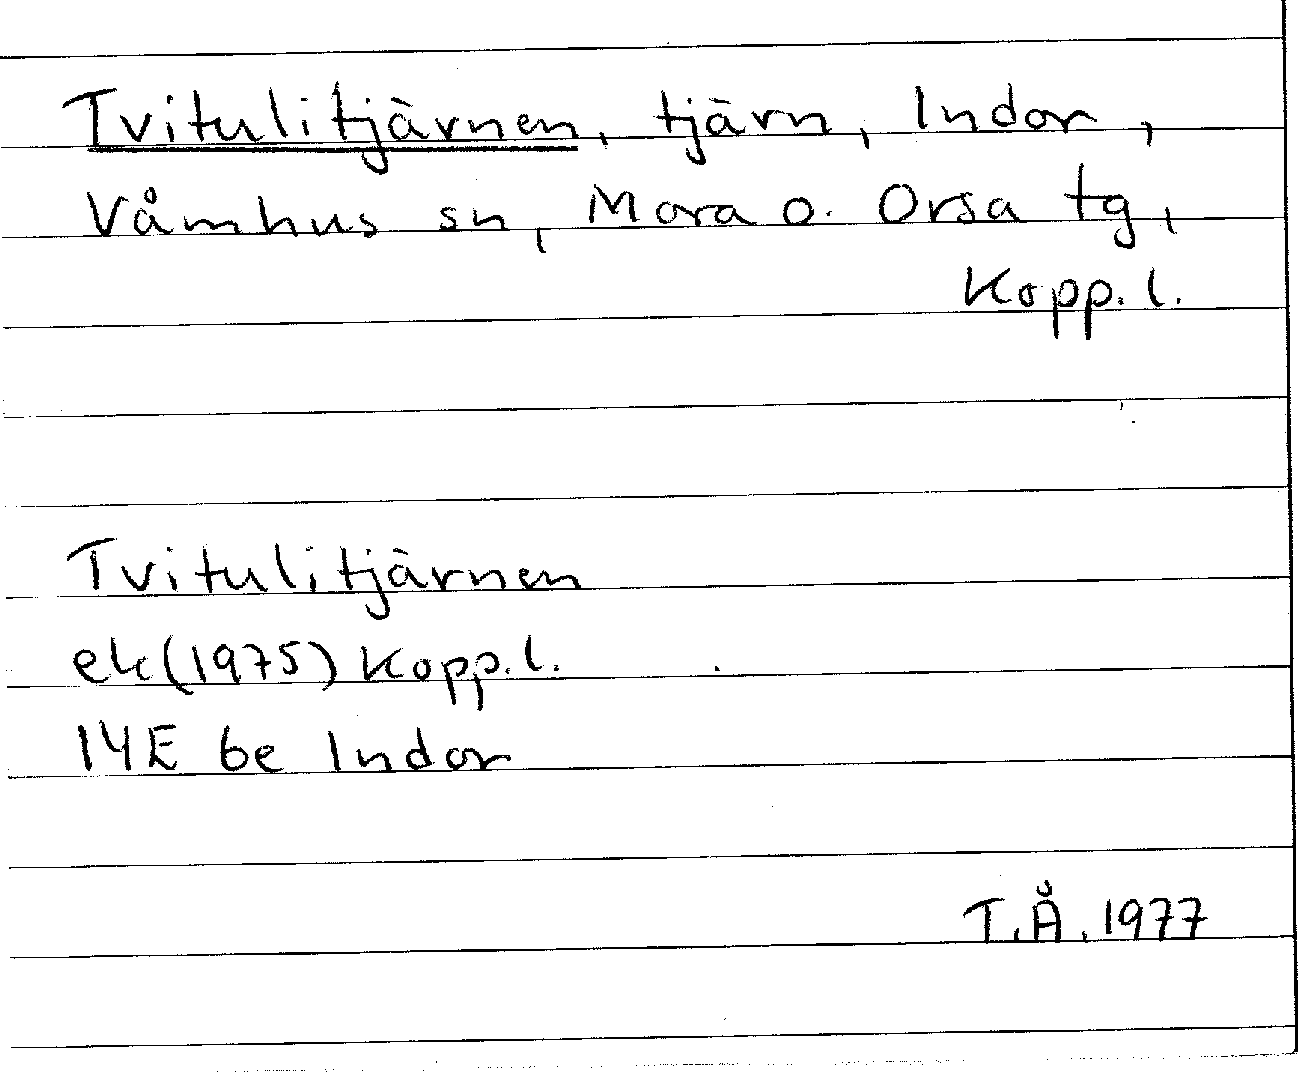 Tvitulitjärnen, tjärn, Indor,
Våmhus sn, Mora o. Orsa tg,
Kopp. l.
Tvitulitjärnen
ek(1975) Kopp. l.
14E 6e Indor
T.Å. 1977